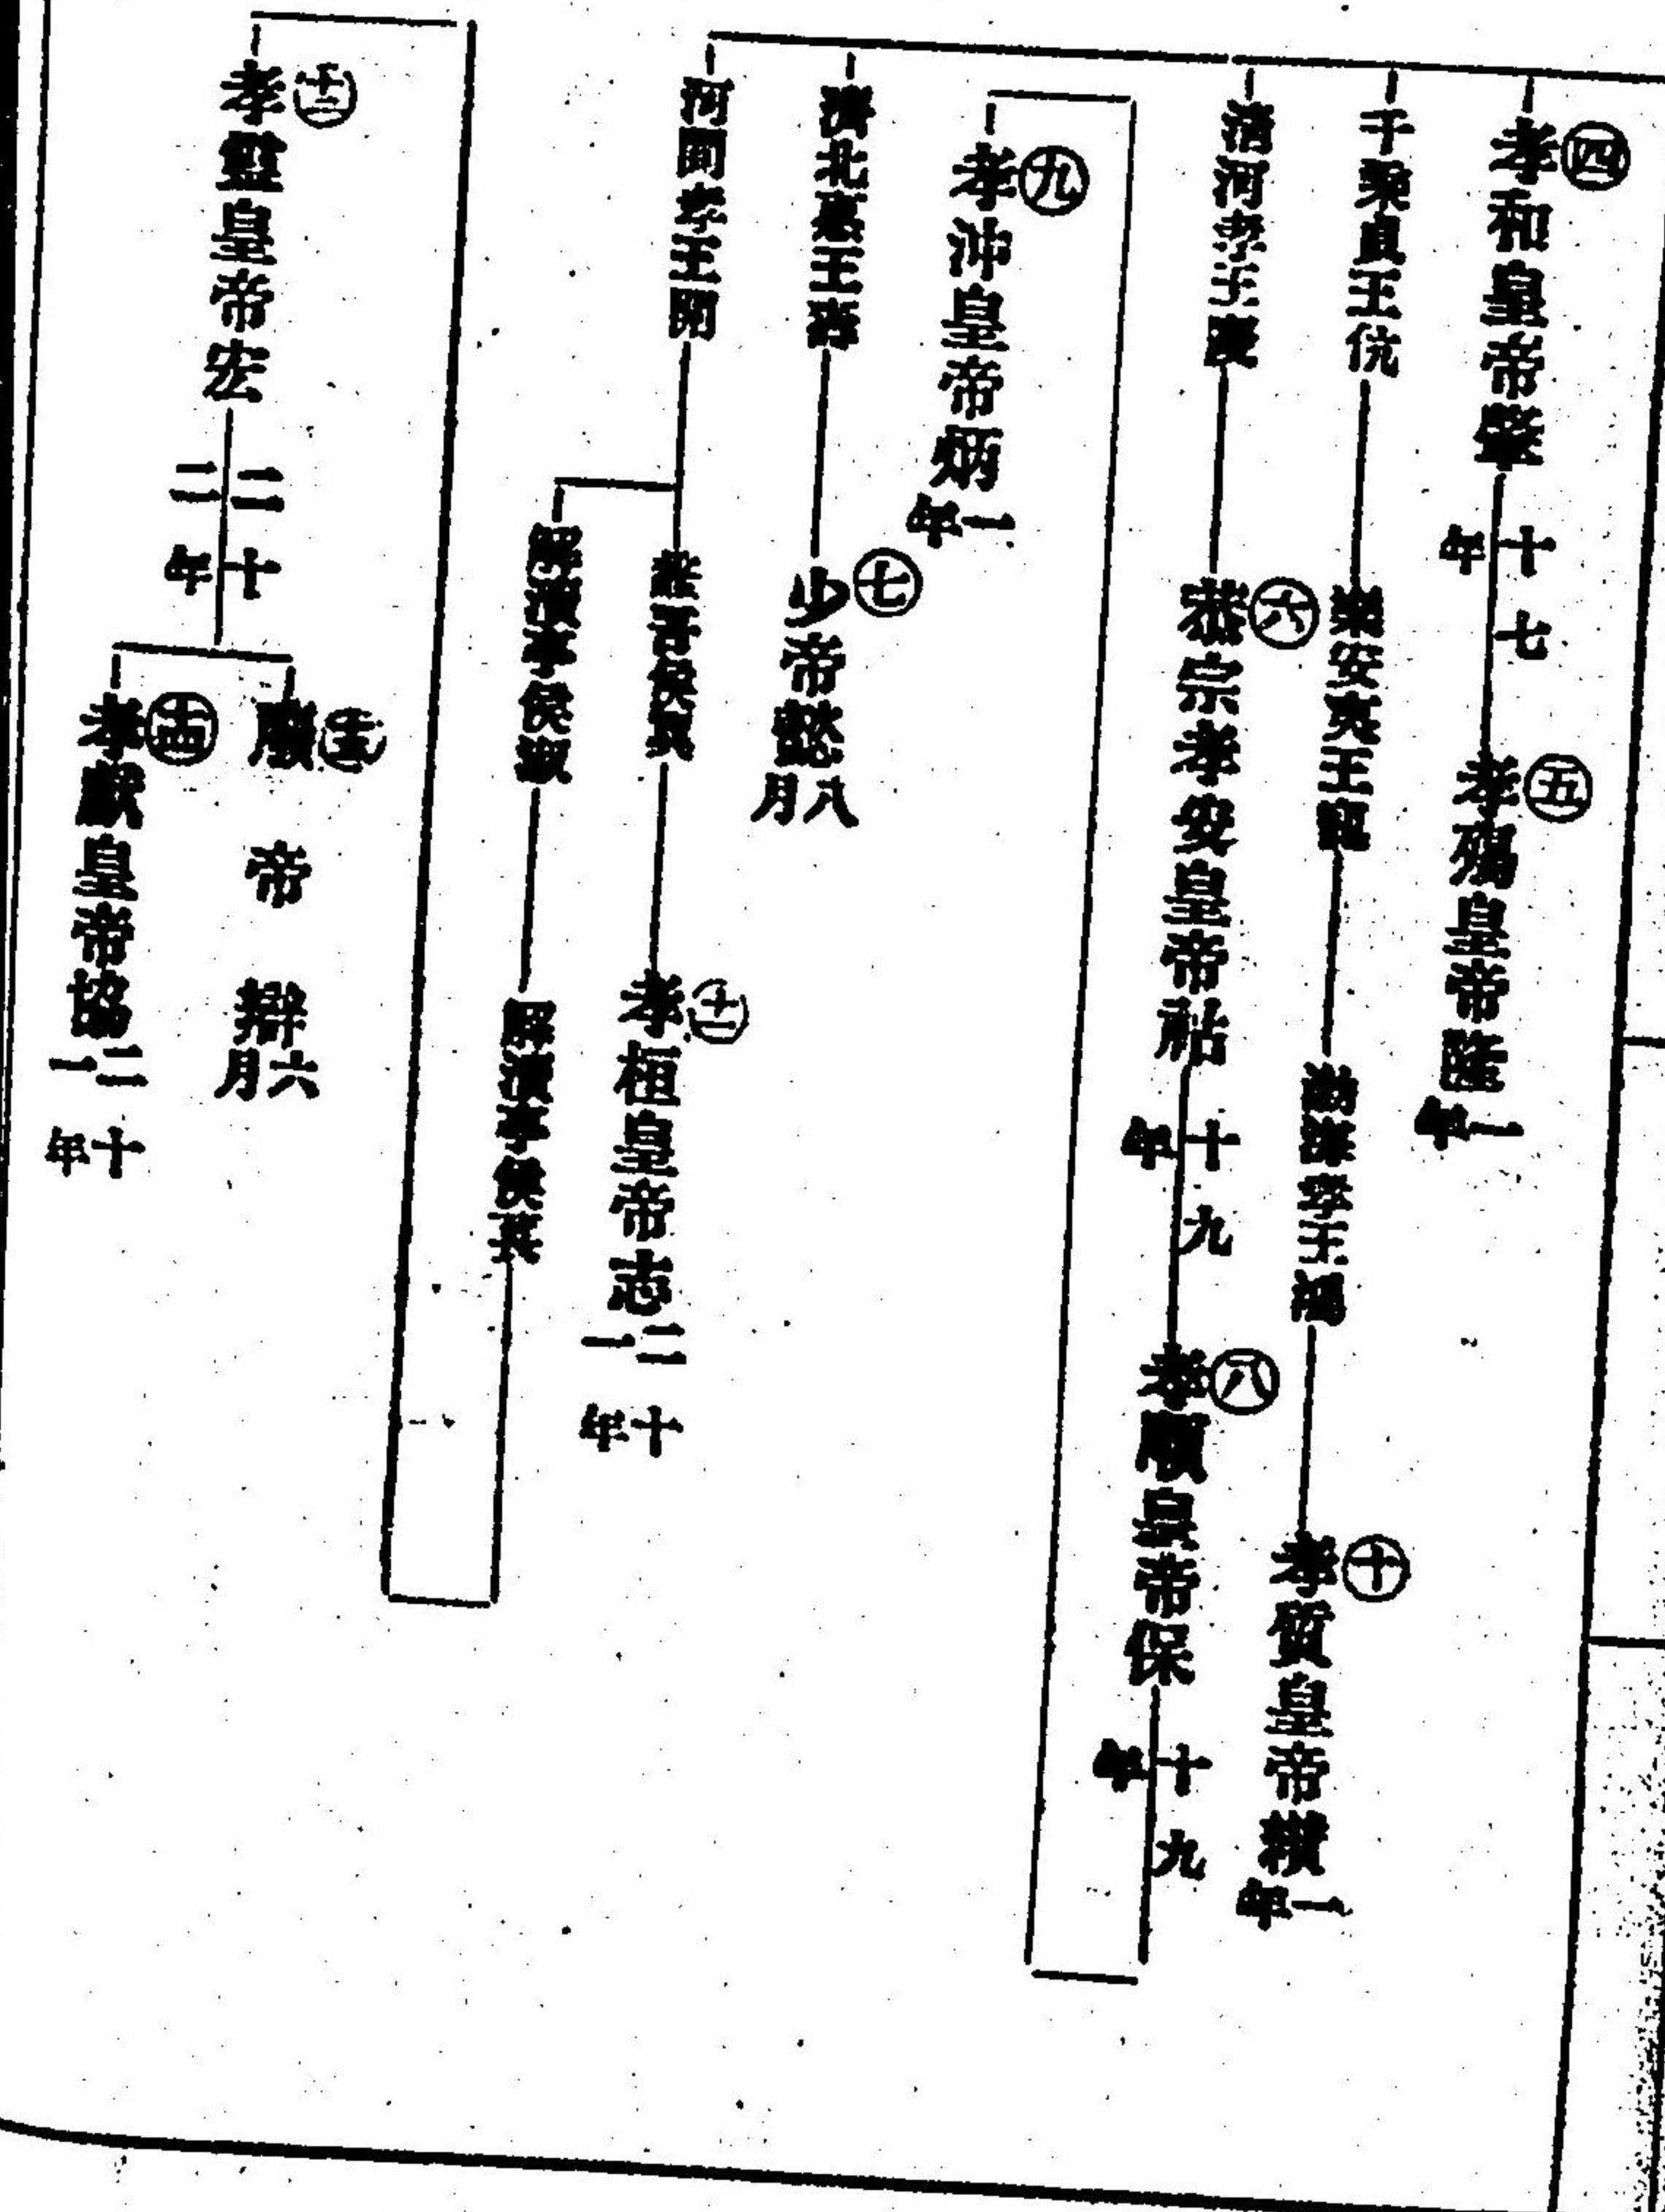 四
孝和皇帝肇
十七年
五
孝殤皇帝隆
一年
千乘貞王伉
樂安夷王寵
勃海孝王鴻
十
孝質皇帝纘
一年
清河孝王慶
六
恭宗孝安皇帝祜
十九年
八
孝順皇帝保
十九年
九
孝沖皇帝炳
一年
濟北惠王壽
七
少帝懿
八月
河間孝王開
蠡吾侯翼
十一
孝桓皇帝志
二十一年
解瀆亭侯淑
解瀆亭侯萇
十二
孝靈皇帝宏
二十二年
十三
廢帝辯
六月
十四
孝獻皇帝協
二十一年